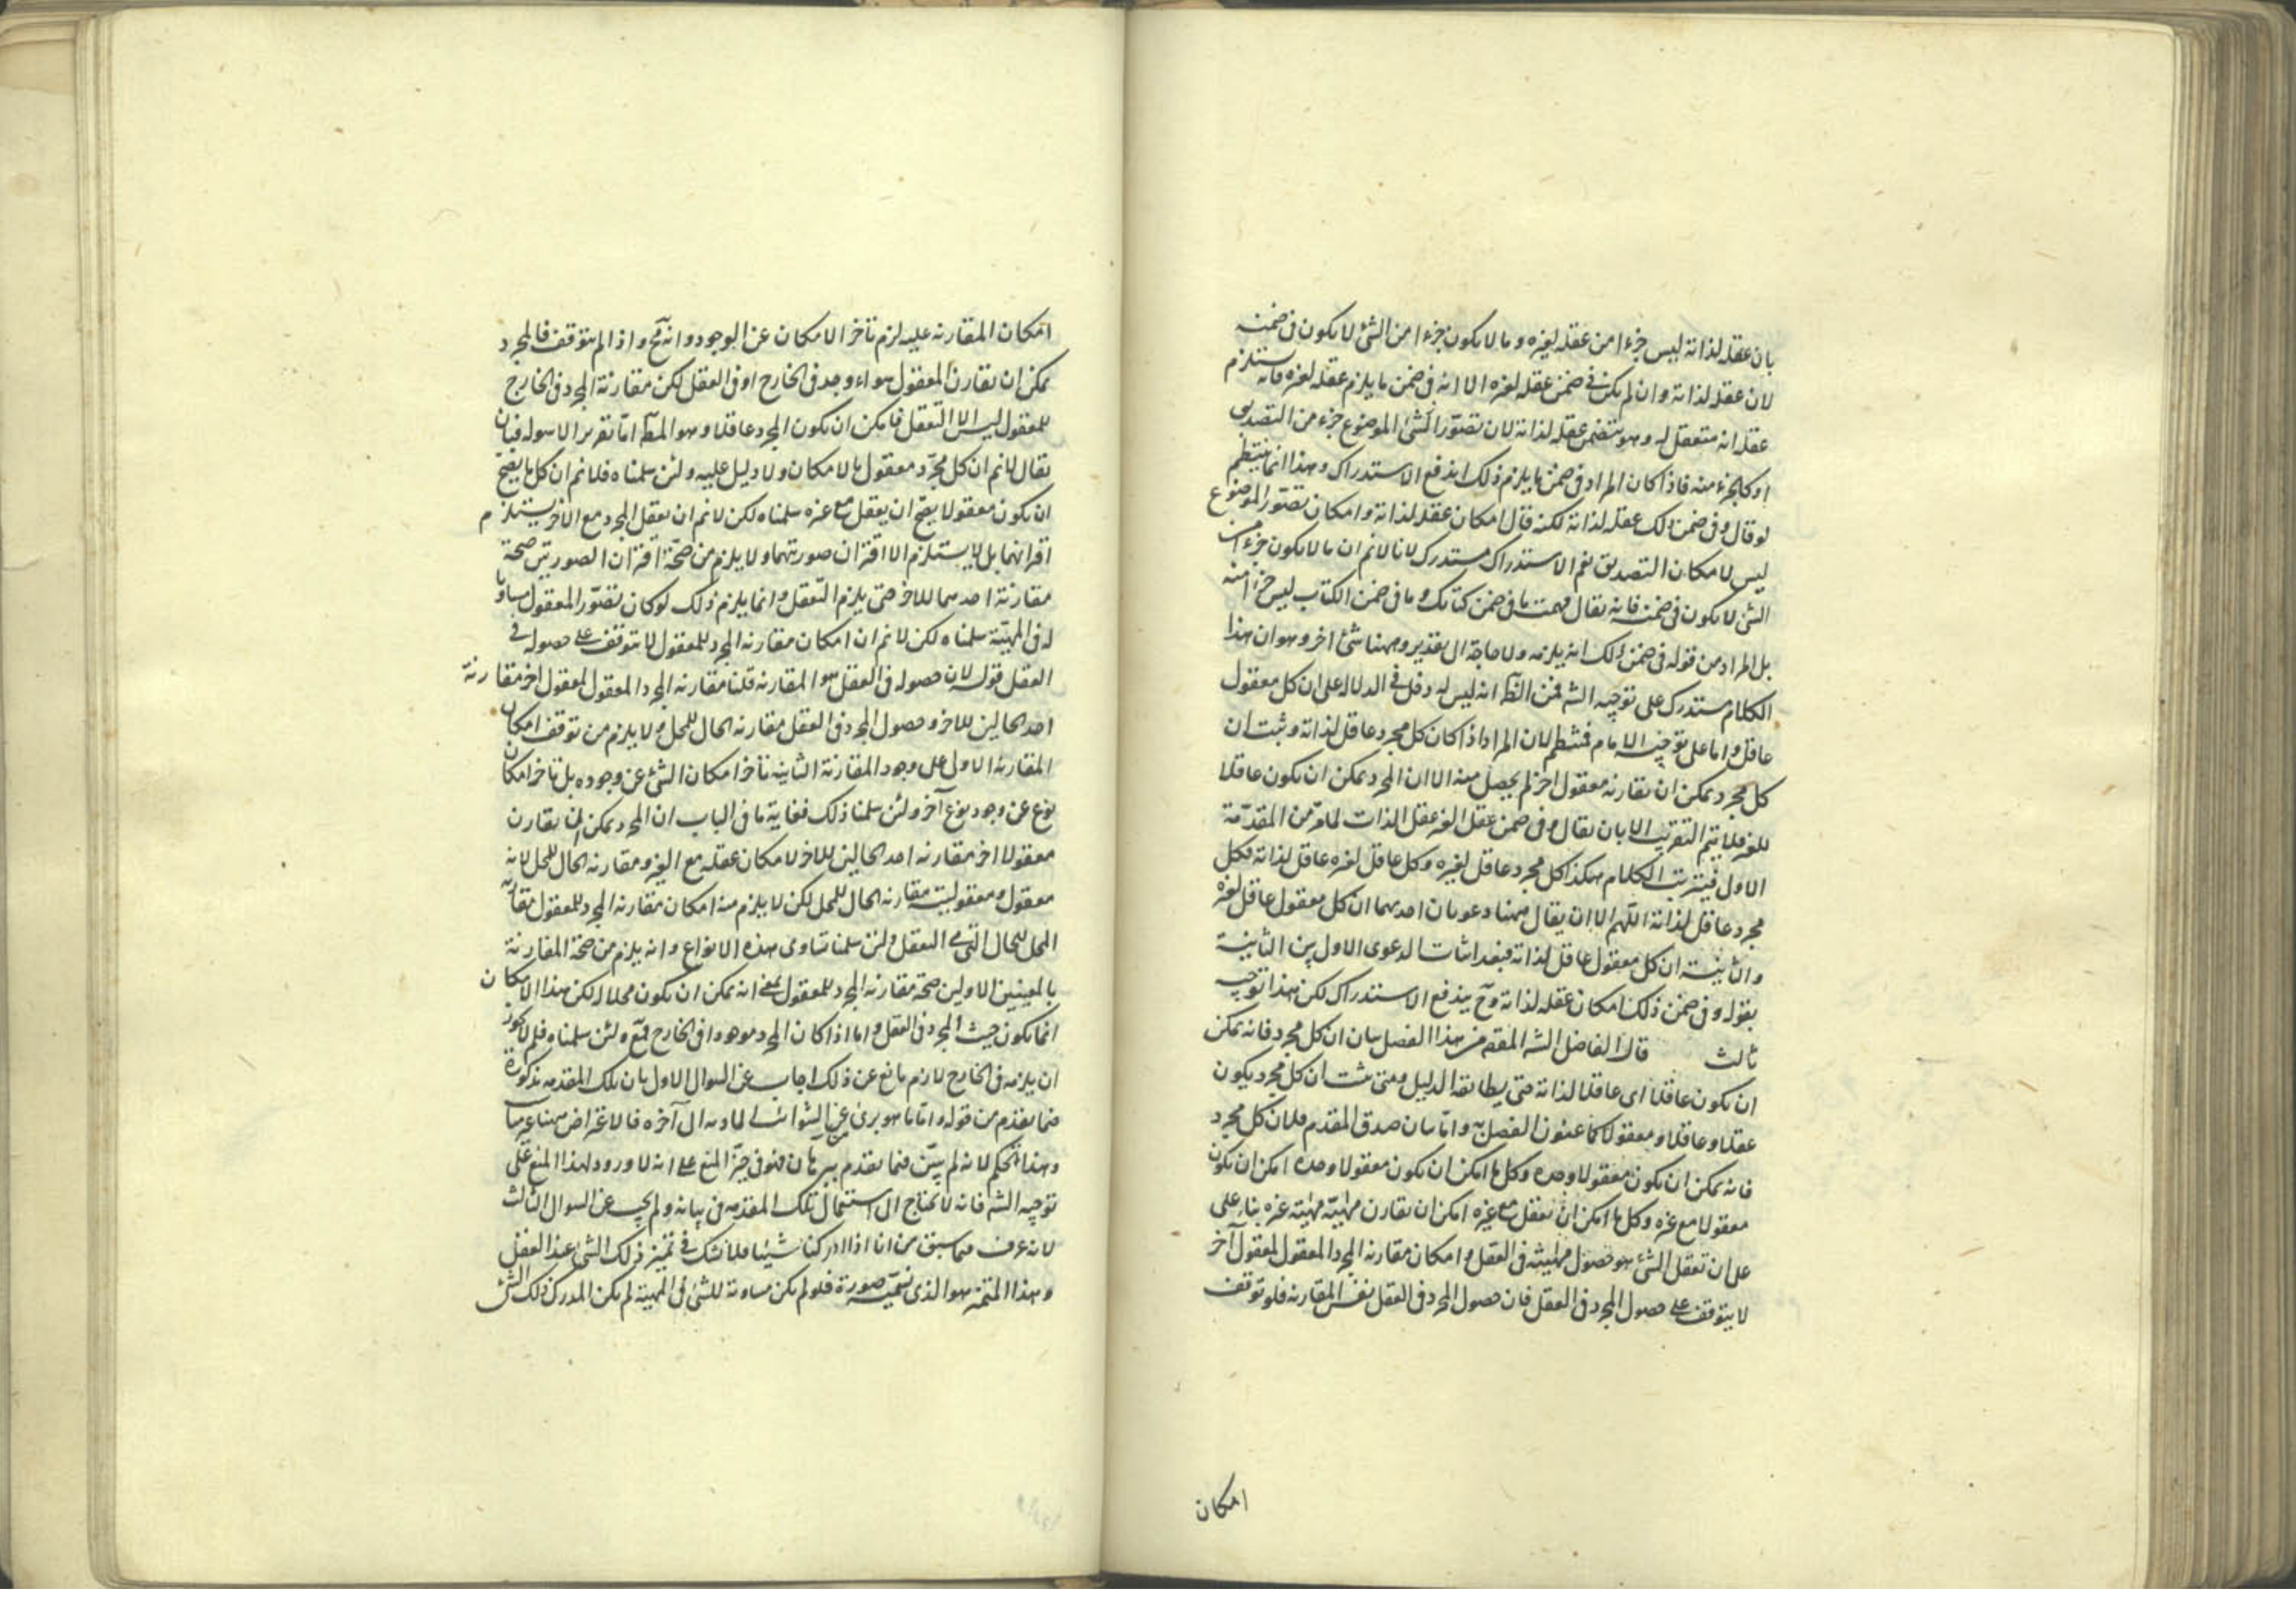 بان عقله لذاته ليس جزءا من عقله لغيره وما لا يكون جزءا من الشئ لا يكون في ضمنه
لان عقله لذاته وان لم يكن في ضمن عقله لغيره الا انه في ضمن ما يلزم عقله لغيره فانه يستلزم
عقله انه متعقل له وهو يتضمن عقله لذاته لان تصور الشئ الموضوع جزء من التصديق
او كالجزء منه فاذا كان المراد في ضمن ما يلزم ذلك اندفع الاستدراك وهذا انما ينتظم
لو قال وفي ضمن ذلك عقله لذاته لكنه قال امكان عقله لذاته وامكان تصور الموضوع
ليس لامكان التصديق نعم الاستدراك مستدرك لانا لا نم ان ما لا يكون جزءا من
الشئ لا يكون في ضمنه فانه يقال فهمت ما في ضمن كتابك وما في ضمن الكتاب ليس جزءا منه
بل المراد من قوله في ضمن ذلك انه يلزمه ولا حاجة الى تقدير وههنا شئ اخر وهو ان هذا
الكلام مستدرك على توجيه الشه فمن الظ انه ليس له دخل في الدلالة على ان كل معقول
عاقل واما على توجيه الامام فمنتظم لان المراد اذا كان كل مجرد عاقل لذاته وثبت ان
كل مجرد يمكن ان يقارنه معقول اخر لم يحصل منه الا ان المجرد يمكن ان يكون عاقلا
للغير فلا يتم التقريب الا بان يقال وفي ضمن عقل الغير عقل الذات لما مر من المقدمة
الاول فيترتب الكلام هكذا كل مجرد عاقل لغيره وكل عاقل لغيره عاقل لذاته فكل
مجرد عاقل لذاته اللهم الا ان يقال ههنا دعويان احديهما ان كل معقول عاقل لغيره
والثانية ان كل معقول عاقل لذاته فبعد اثبات الدعوى الاول بين الثانية
بقوله وفي ضمن ذلك امكان عقله لذاته وح يندفع الاستدراك لكن هذا توجيه
ثالث قال الفاضل الشه المقصد من هذا الفصل بيان ان كل مجرد فانه يمكن
ان يكون عاقلا اى عاقلا لذاته حتى يطابقه الدليل ومتى ثبت ان كل مجرد يكون
عقلا وعاقلا ومعقولا كما عنون الفصل به واما بيان صدق المقدم فلان كل مجرد
فانه يمكن ان يكون معقولا وحده وكل ما امكن ان يكون معقولا وحده امكن ان يكون
معقولا مع غيره وكل ما امكن ان يعقل مع غيره امكن ان يقارن مهيته مهية غيره بناء على
على ان تعقل الشئ هو حصول مهيته في العقل وامكان مقارنه المجرد المعقول لمعقول آخر
لا يتوقف على حصول المجرد في العقل فان حصول المجرد في العقل نفس المقارنه فلو توقف
امكان
امكان المقارنه عليه لزم تاخر الامكان عن الوجود وانه مح واذا لم يتوقف فالمجرد
يمكن ان يقارن المعقول سواء وجد في الخارج او في العقل لكن مقارنة المجرد في الخارج
للمعقول ليس الا التعقل فامكن ان يكون المجرد عاقلا وهو المط اما تقرير الاسوله فبان
يقال لا نم ان كل مجرد معقول بالامكان ولا دليل عليه ولئن سلمناه فلا نم ان كل ما يصح
ان يكون معقولا يصح ان يعقل مع غيره سلمناه لكن لا نم ان تعقل المجرد مع الاخر يستلزم
اقترانهما بل لا يستلزم الا اقتران صورتيهما ولا يلزم من صحة اقتران الصورتين صحة
مقارنة احديهما للاخر حتى يلزم التعقل وانما يلزم ذلك لو كان تصور المعقول مساويا
له في المهية سلمناه لكن لا نم ان امكان مقارنه المجرد للمعقول لا يتوقف على حصوله في
العقل قوله لان حصوله في العقل هو المقارنه قلنا مقارنه المجرد المعقول لمعقول اخر مقارنة
احد الحالين للاخر وحصول المجرد في العقل مقارنه الحال للمحل ولا يلزم من توقف امكان
المقارنه الاولى على وجود المقارنة الثانية تاخر امكان الشئ عن وجوده بل تاخر امكان
نوع عن وجود نوع آخر ولئن سلمنا ذلك فغاية ما في الباب ان المجرد يمكن ان يقارن
معقولا اخر مقارنه احد الحالين للاخر لامكان عقله مع الغير ومقارنه الحال للمحل لانه
معقول ومعقوليته مقارنه الحال للمحل لكن لا يلزم منه امكان مقارنه المجرد للمعقول مقارنة
المحل للحال التي هي التعقل ولئن سلمنا تساوى هذه الانواع وانه يلزم من صحة المقارنة
بالمعنيين الاولين صحة مقارنه المجرد للمعقول بمعنى انه يمكن ان يكون محلا له لكن هذا الامكان
انما يكون حيث المجرد في العقل واما اذا كان المجرد موجودا في الخارج فمم ولئن سلمناه فلم لا يجوز
ان يلزمه في الخارج لازم مانع عن ذلك اجاب عن السوال الاول بان تلك المقدمه مذكورة
فيما تقدم من قوله واما ما هو برئ عن الشوائب المادية الى آخره فالاعتراض ههنا عليها
وهذا تحكم لانه لم يبين فيما تقدم ببرهان فهو في حيز المنع على انه لا ورود لهذا المنع على
توجيه الشه فانه لا يحتاج الى استعمال تلك المقدمه في بيانه ولم يجب عن السوال الثالث
لانه عرف مما سبق من انا اذا ادركنا شيئا فلا نشك في تميز ذلك الشئ عند العقل
وهذا المتميز هو الذي نسميه صورة فلو لم يكن مساوية للشئ في المهية لم يكن المدرك ذلك الشئ